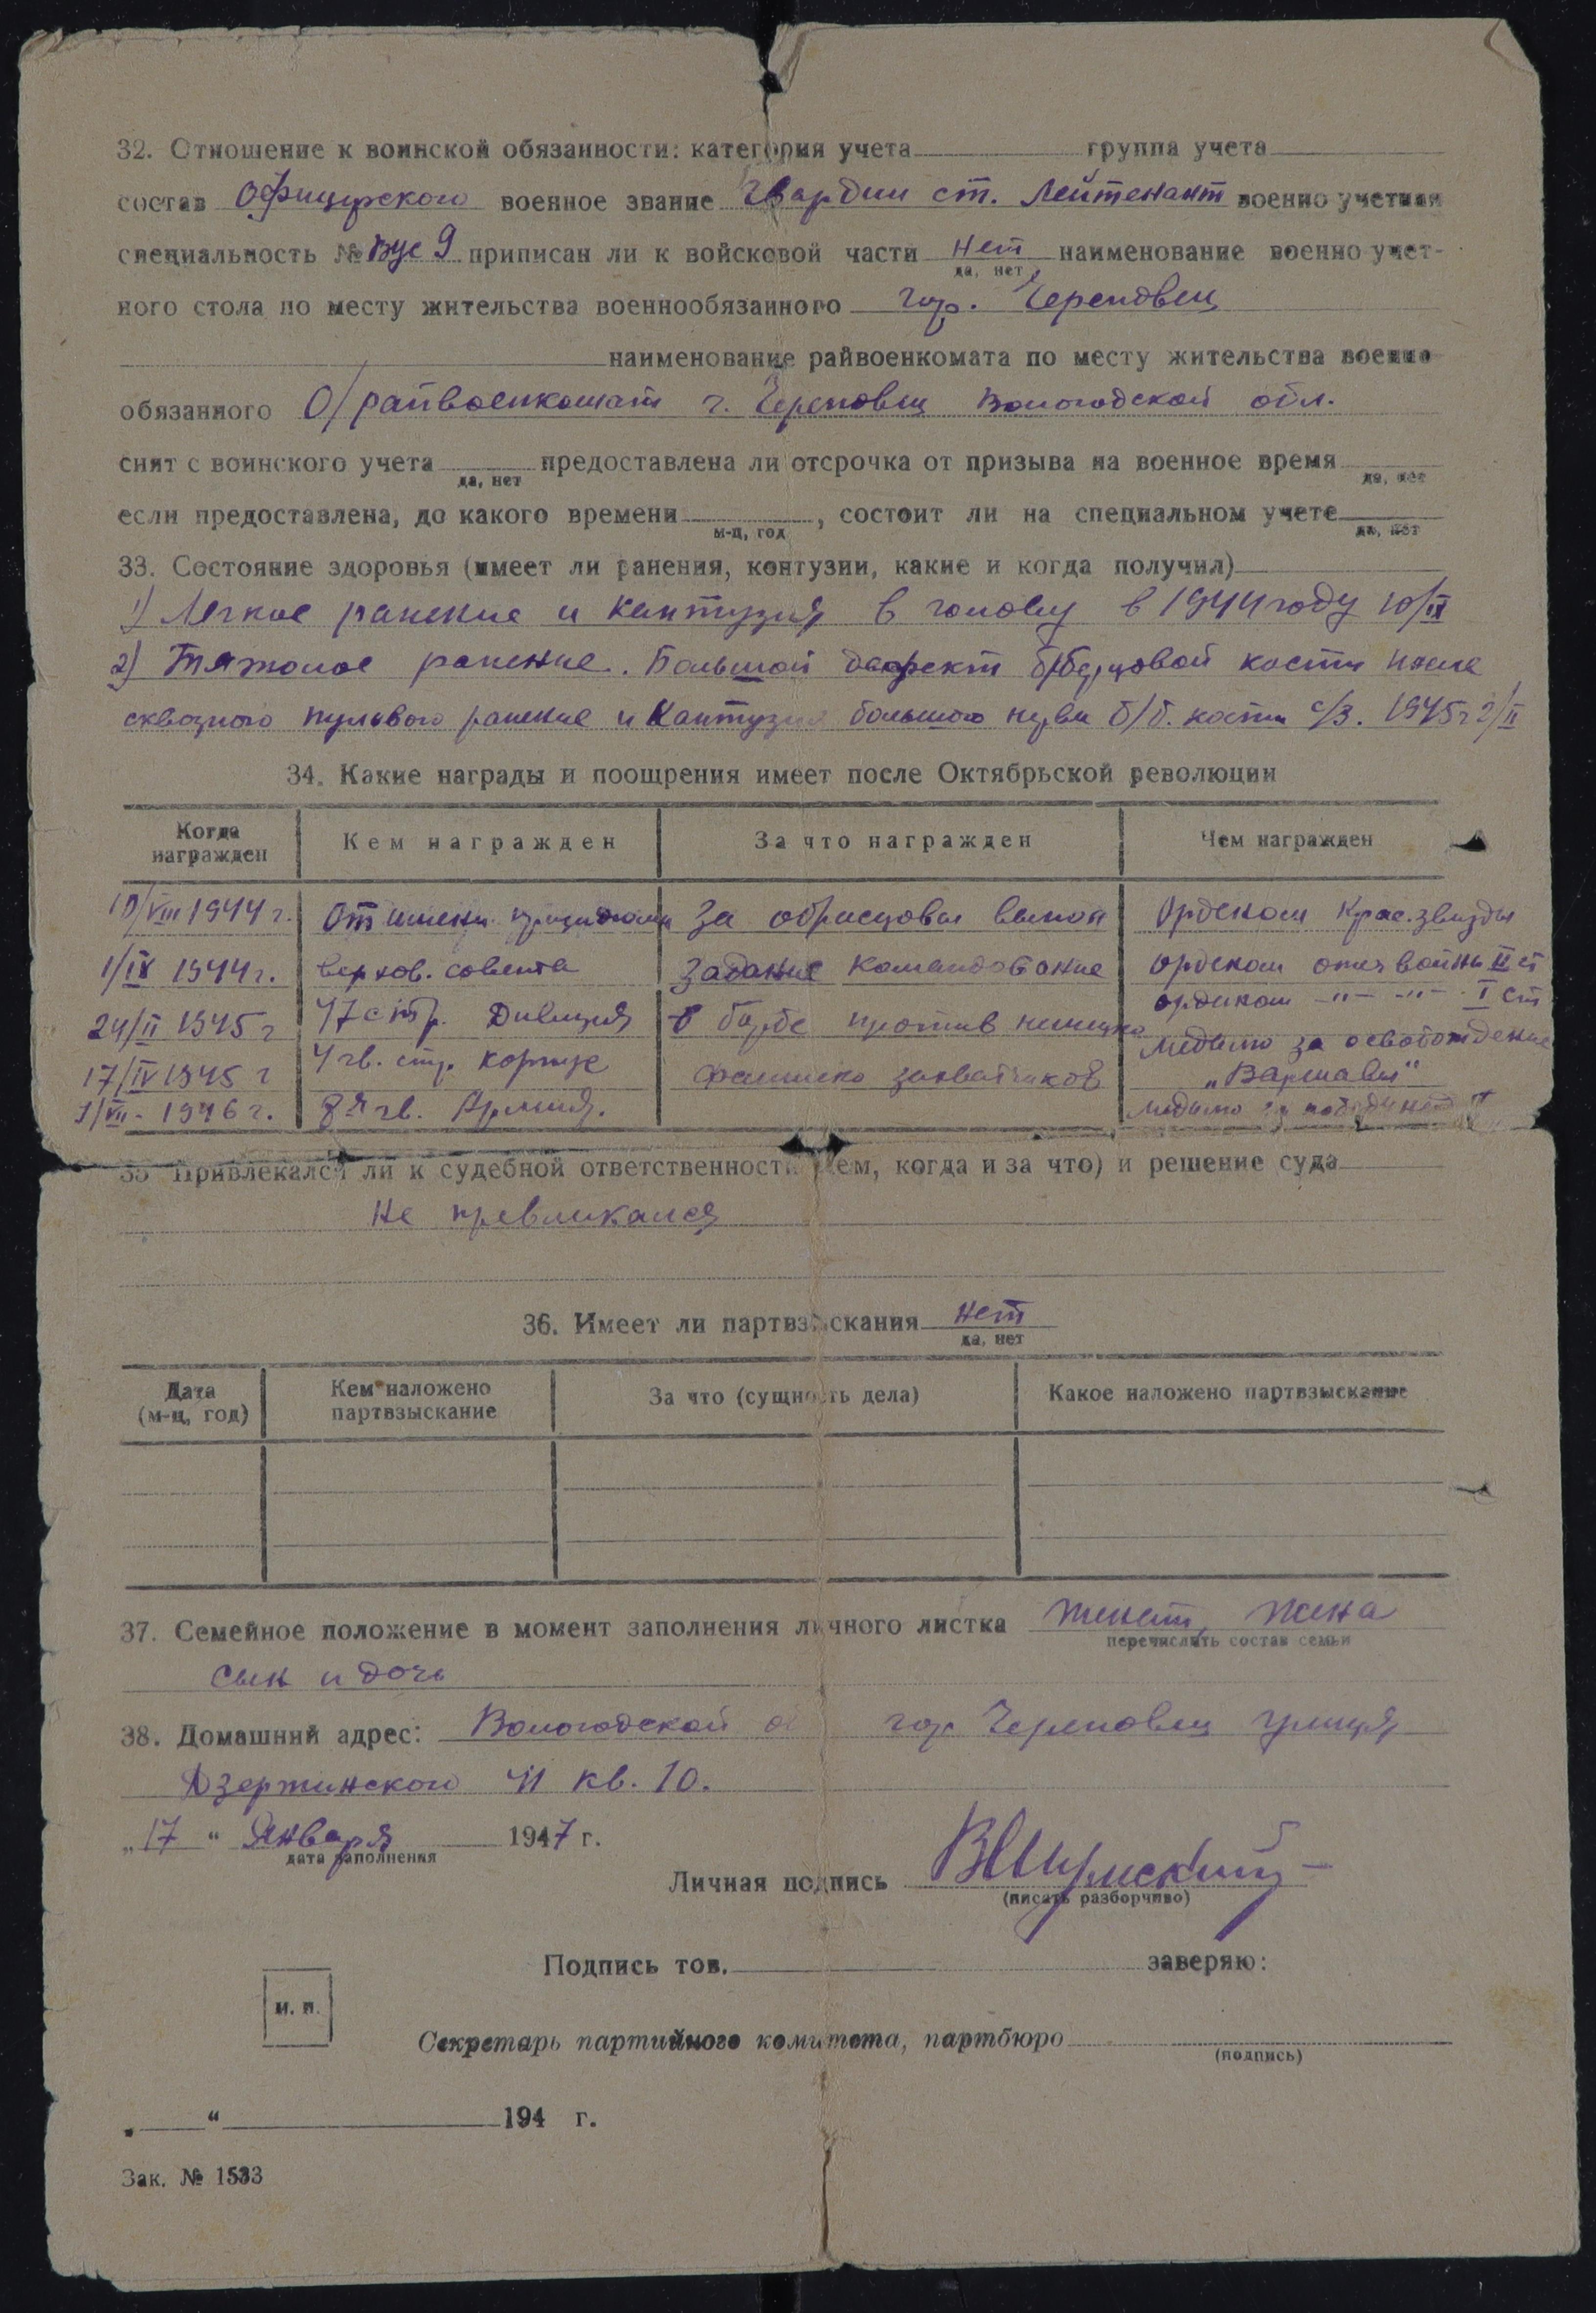 32. Отношение к воинской обязанности: категория учета группа учета
состав Офицерского военное звание Гвардии ст. Лейтенант военно учетная
специальность № Вус 9 приписан ли к войсковой части нет наименование военно-учет-
да, нет
ного стола по месту жительства военнообязанного гор. Череповец
наименование райвоенкомата по месту жительства военно-
обязанного О/райвоенкомат г. Череповец Вологодской обл.
снят с воинского учета предоставлена ли отсрочка от призыва на военное время
да, нет да, нет
если предоставлена, до какого времени , состоит ли на специальном учете
м-ц, год да, нет
33. Состояние здоровья (имеет ли ранения, контузии, какие и когда получил)
1) Легкое ранение и Контузия в голову в 1944 году 10/IX
2) Тяжолое ранение. Большой дефект б/берцовой кости после
сквозного пулевого ранение и Контузия большого нерви б/б. кости с/з. 1945 г 2/II
34. Какие награды и поощрения имеет после Октябрьской революции
Когда награжден Кем награжден За что награжден Чем награжден
10/VIII 1944 г. От имени призидиоми За образцовы выпол Орденом Крас. звизды
1/IX 1944 г. верхов. совета Задание командование Орденом отеч войны II ст
24/II 1945 г 47 стр. Дивизия в борбе против немецко орденом -"- -"- I ст
17/IV 1945 г 4 гв. стр. корпус фашиско захватчиков медалю за освобождение
„Варшавы“
1/VII - 1946 г. 8 я гв. Армия. медалю за победу
35 Привлекался ли к судебной ответственности (кем, когда и за что) и решение суда
Не превликался
36. Имеет ли партвзыскания нет
да, нет
Дата (м-ц, год) Кем наложено партвзыскание За что (сущность дела) Какое наложено партвзыскание
37. Семейное положение в момент заполнения личного листка женат, жена
перечислить состав семьи
сын и дочь
38. Домашний адрес: Вологодской гор Череповец улиця
Дзержинского 41 кв. 10.
„17“ Января 1947 г.
дата заполнения
Личная подпись
(писать разборчиво)
Подпись тов. заверяю:
м. п.
Секретарь партийного комитета, партбюро
(подпись)
„ “ 194 г.
Зак. № 1533